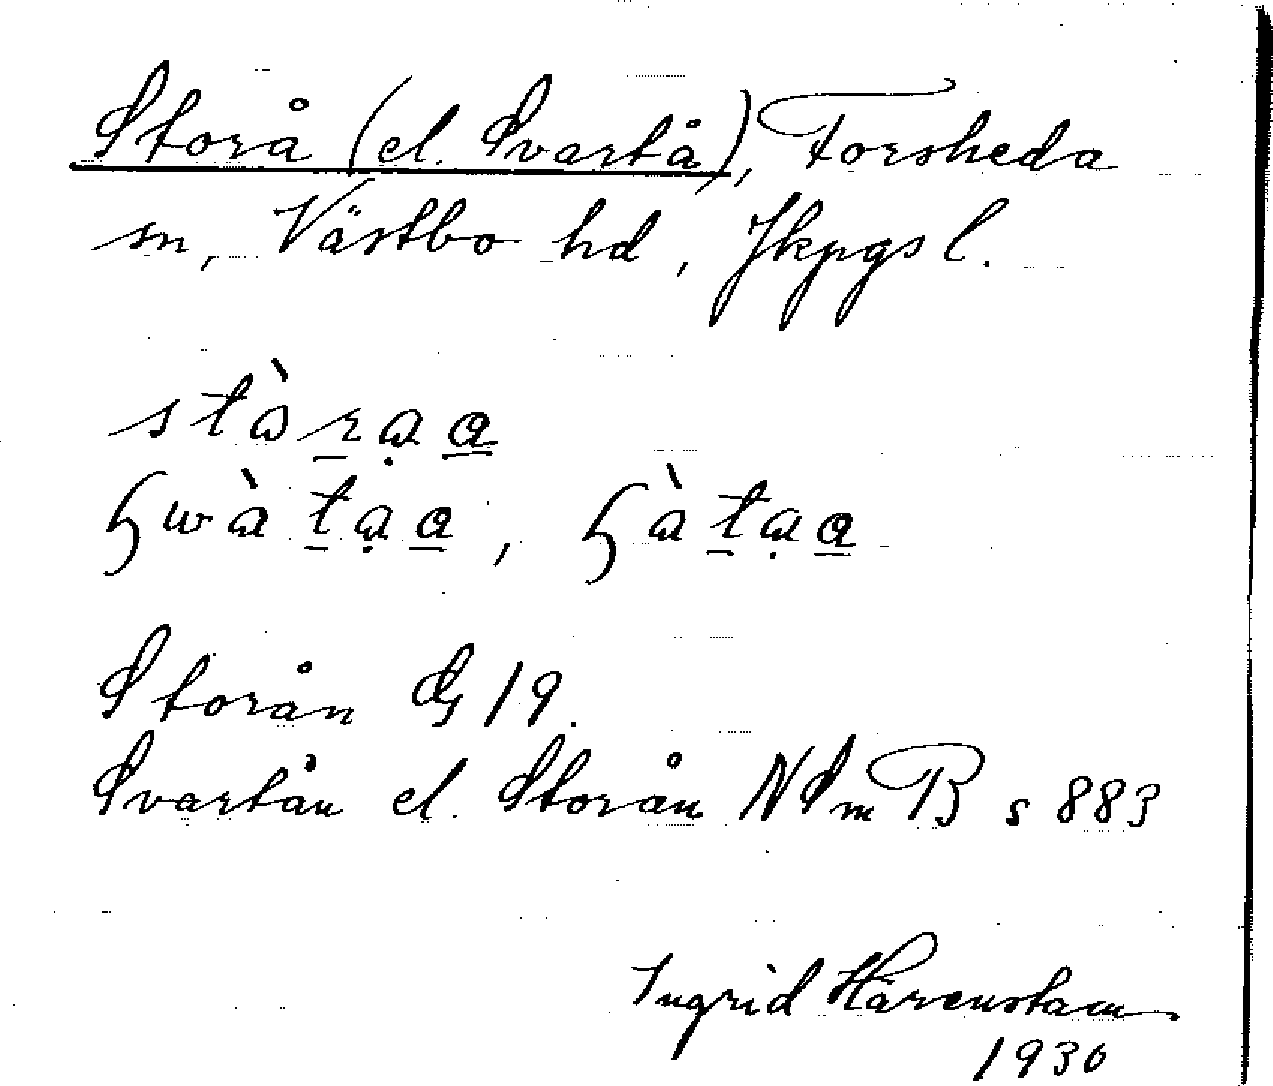 Storå (el. Svartå), Forsheda
sn, Västbo hd, Jkpgs l.
Storån G 19.
Svartån el. Storån NSmB s 883
Ingrid Härenstam
1930